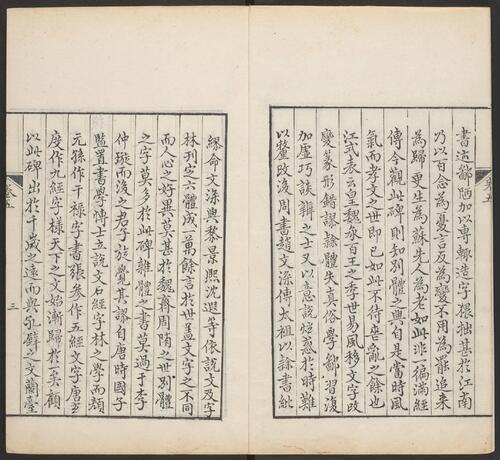 書迹鄙陋加以專輒造字猥拙甚於江南
乃以百念為憂言反為變不用為罷追来
為歸更生為蘇先人為老如此非一徧滿經
傳今觀此碑則知別體之興自是當時風
氣而孝文之世即已如此不待喪亂之餘也
江式表云皇魏承百王之季世易風移文字改
變篆形錯謬隸體失真俗學鄙習復
加虛巧談辯之士又以意說炫惑於時難
以釐改後周書趙文深傳太祖以隸書紕
繆命文深與黎景熙沈遐等依說文及字
林刊定六體成一萬餘言於世盖文字之不同
而人心之好異莫甚於魏齊周隋之世別體
之字莫多於此碑雜體之書莫過于李
仲璇而後之君子旋覺其謬自唐時國子
監置書學博士立說文石經字林之學而顏
元孫作干祿字書張參作五經文字唐玄
度作九經字樣天下之文始漸歸於一矣顧
以此碑出於千歲之遠而與孔壁之文蘭臺
卷五
三